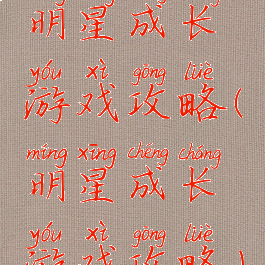 明星成长
yóu xì gōng lüè
游戏攻略(
míng xīng chéng cháng
明星成长
yóu xì gōng lüè
游戏攻略)